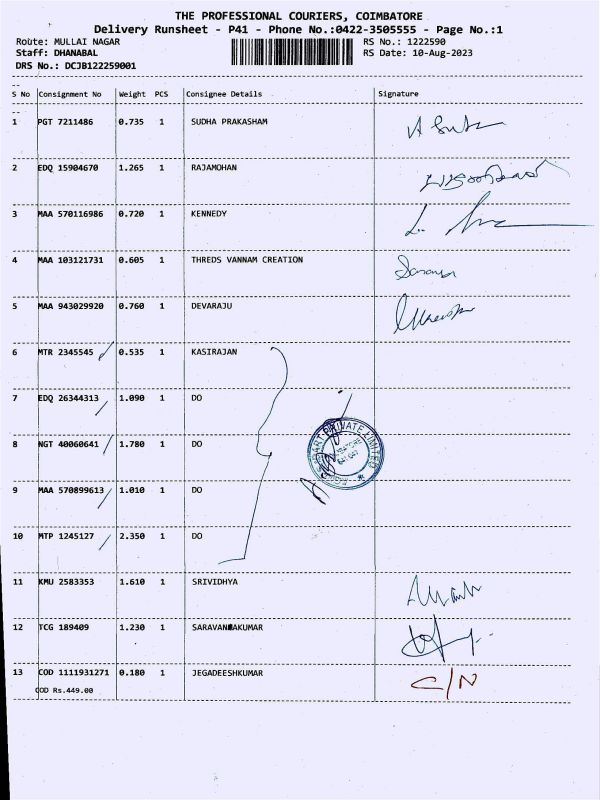 THE PROFESSIONAL COURIERS, COIMBATORE
Delivery Runsheet - P41 - Phone No.:0422-3505555 - Page No.:1
Route: MULLAI NAGAR RS No.: 1222590
Staff: DHANABAL RS Date: 10-Aug-2023
DRS No.: DCJB122259001
S No Consignment No Weight PCS Consignee Details Signature
1 PGT 7211486 0.735 1 SUDHA PRAKASHAM
2 EDQ 15904670 1.265 1 RAJAMOHAN
3 MAA 570116986 0.720 1 KENNEDY
4 MAA 103121731 0.605 1 THREDS VANNAM CREATION
5 MAA 943029920 0.760 1 DEVARAJU
6 MTR 2345545 0.535 1 KASIRAJAN
7 EDQ 26344313 1.090 1 DO
8 NGT 40060641 1.780 1 DO
PRIVATE LIMITED
9 MAA 570899613 1.010 1 DO
10 MTP 1245127 2.350 1 DO
11 KMU 2583353 1.610 1 SRIVIDHYA
12 TCG 189409 1.230 1 SARAVANAKUMAR
13 COD 1111931271 0.180 1 JEGADEESHKUMAR C/N
COD Rs.449.00